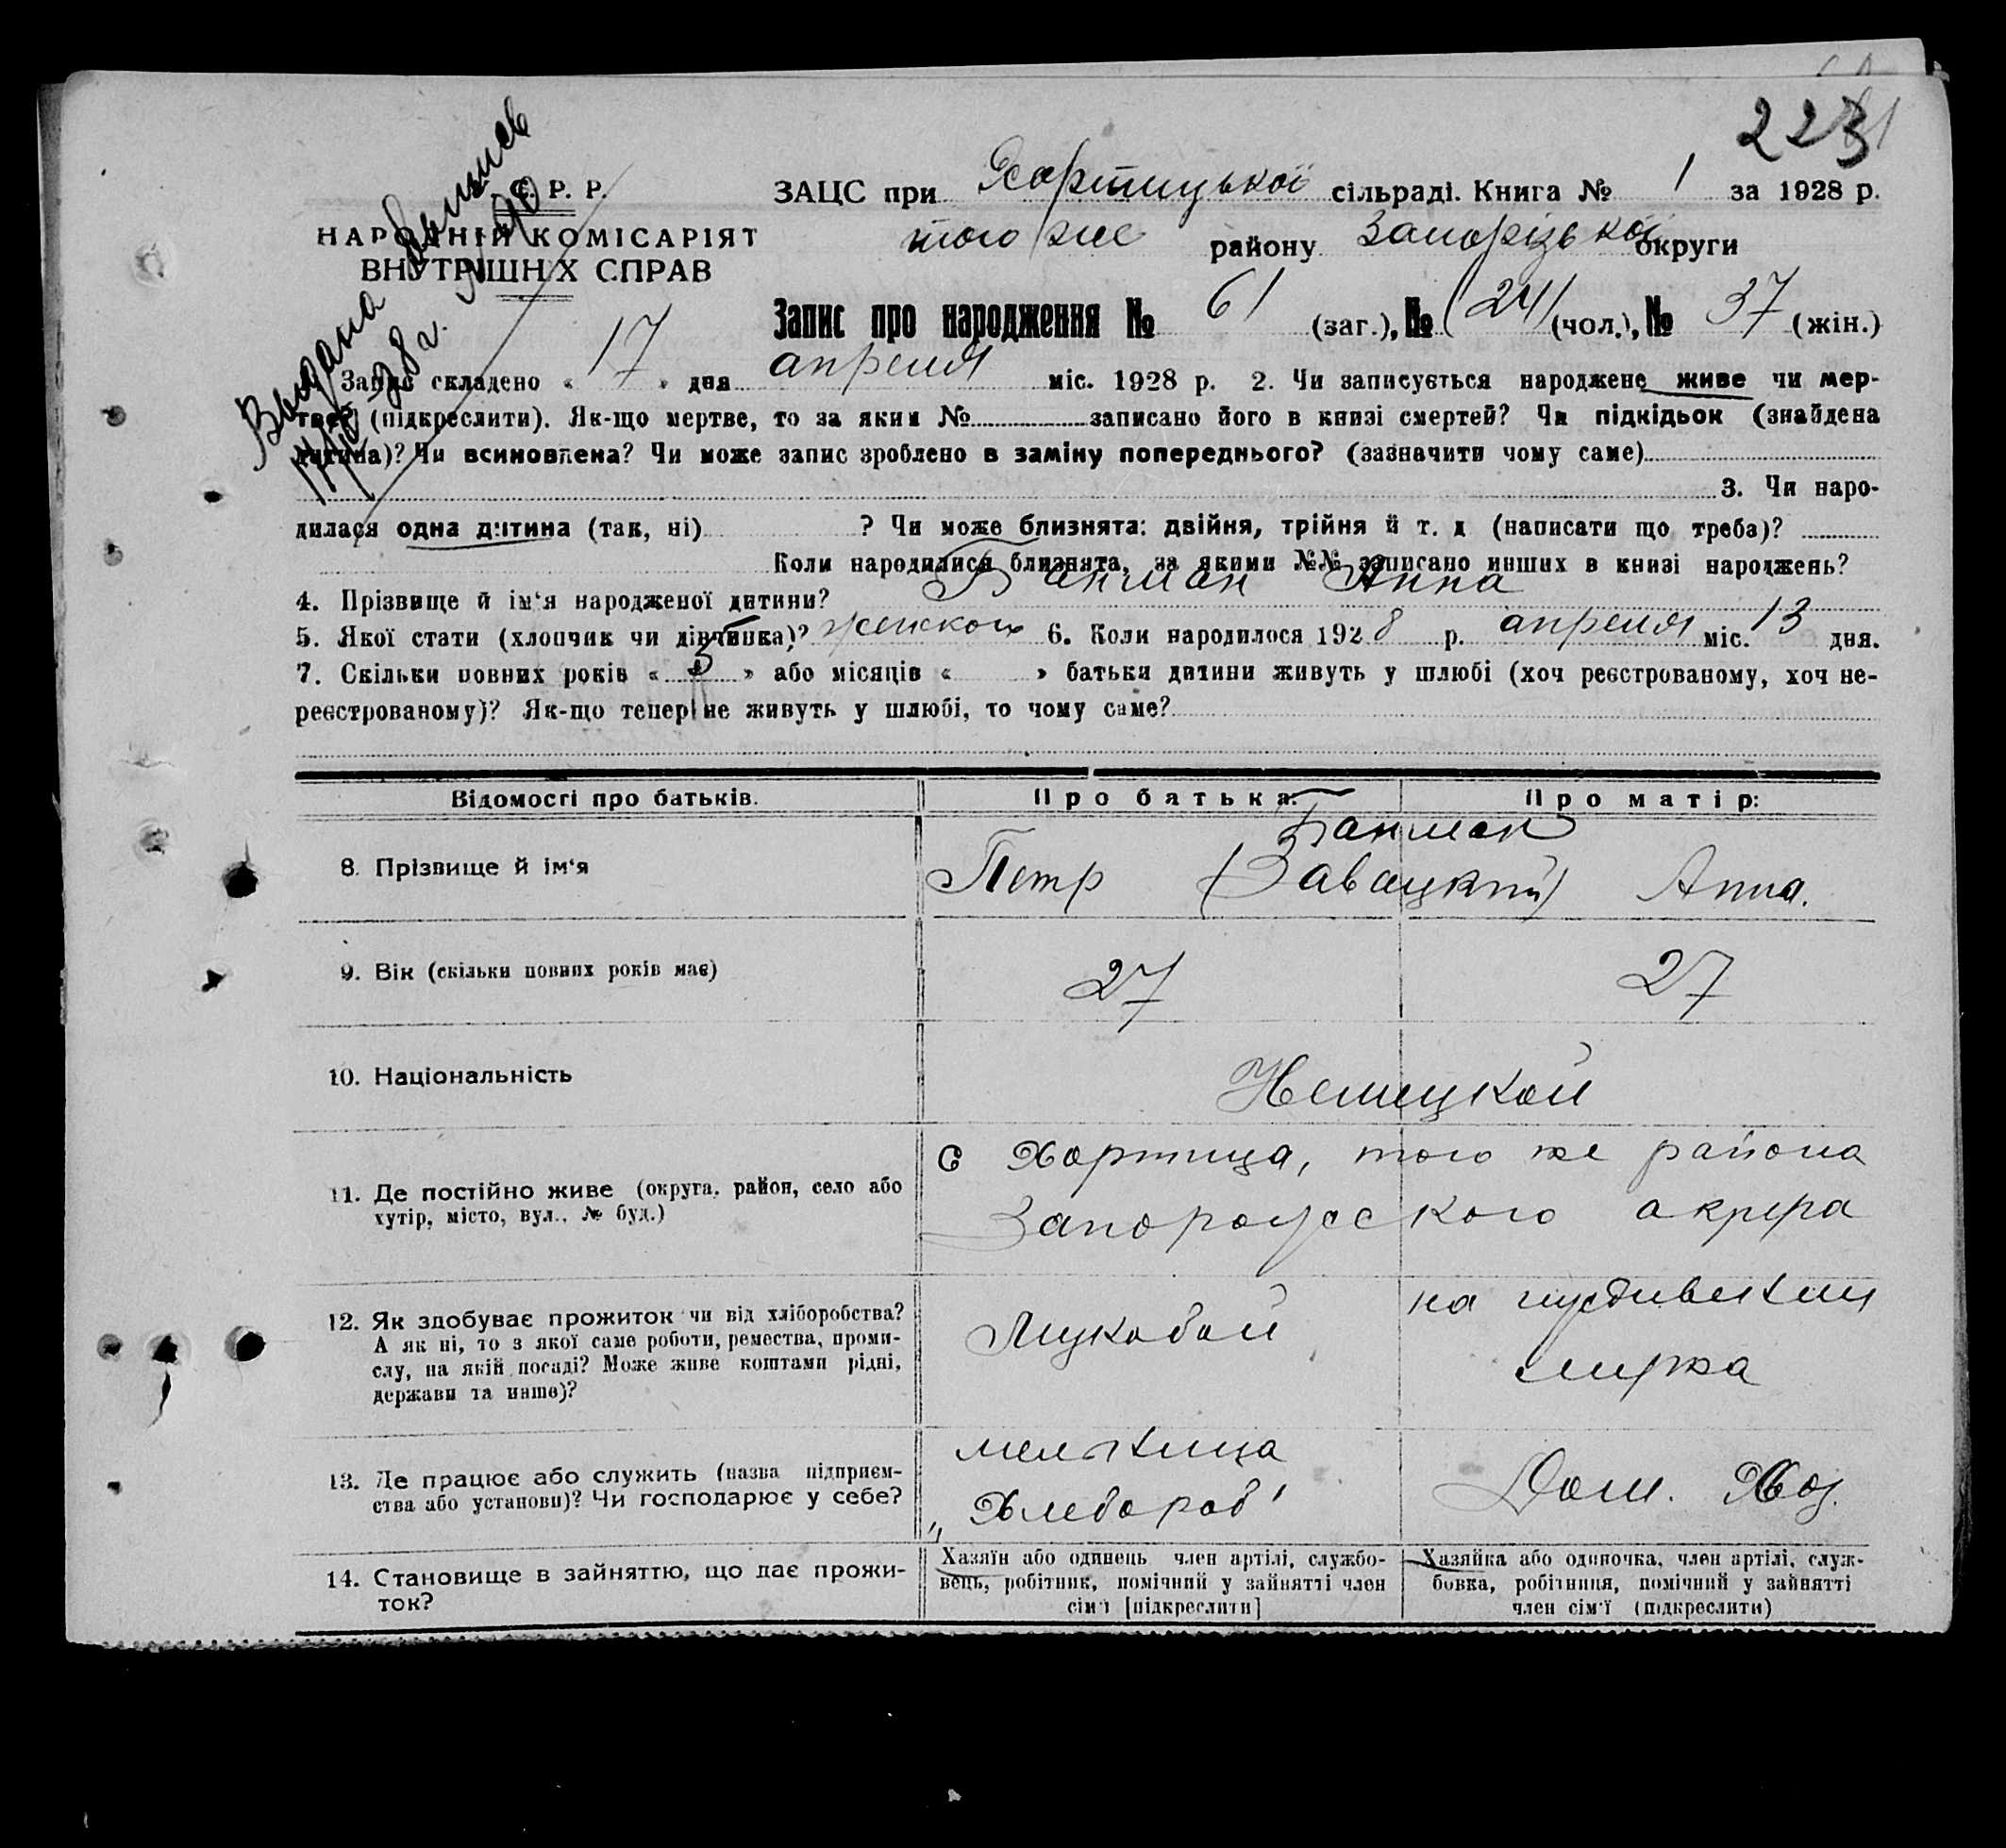 223
С. Р. Р.
НАРОДНІЙ КОМІСАРІЯТ
ВНУТРІШНІХ СПРАВ
Выдана выпись
28 г. № 90
ЗАЦС при Хортицької сільраді. Книга № 1 за 1928 р.
того же району Запорізької округи
Запис про народження № 61 (заг.), № (24) (чол.), № 37 (жін.)
Запис складено « 17 » дня апреля міс. 1928 р. 2. Чи записується народжене живе чи мер-
тве? (підкреслити). Як-що мертве, то за яким № записано його в книзі смертей? Чи підкідьок (знайдена
дитина)? Чи всиновлена? Чи може запис зроблено в заміну попереднього? (зазначити чому саме)
3. Чи наро-
дилася одна дитина (так, ні) ? Чи може близнята: двійня, трійня й т. д (написати що треба)?
Коли народилися близнята, за якими №№ записано инших в книзі народжень?
4. Прізвище й ім'я народженої дитини? Банман Анна
5. Якої стати (хлопчик чи дівчинка)? женской 6. Коли народилося 1928 р. апреля міс. 13 дня.
7. Скільки повних років « 3 » або місяців « » батьки дитини живуть у шлюбі (хоч реєстрованому, хоч не-
реєстрованому)? Як-що тепер не живуть у шлюбі, то чому саме?
Відомості про батьків. Про батька: Про матір:
Банман
8. Прізвище й ім'я Петр (Завацкий) Анна.
9. Вік (скільки повних років має) 27 27
10. Національність Немецкой
11. Де постійно живе (округа, район, село або
хутір, місто, вул., № буд.)
с Хортица, того же района
Запорожского округа
12. Як здобуває прожиток чи від хліборобства?
А як ні, то з якої саме роботи, ремества, проми-
слу, на якій посаді? Може живе коштами рідні,
держави та инше)?
Мукобой
на иждивении
мужа
13. Де працює або служить (назва підприєм-
ства або установи)? Чи господарює у себе?
мельница
„Хлебороб"
Дом. Хоз.
14. Становище в зайняттю, що дає прожи-
ток?
Хазяїн або одинець член артілі, службо-
вець, робітник, помічний у зайнятті член
сім'ї [підкреслити]
Хазяйка або одиночка, член артілі, служ-
бовка, робітниця, помічний у зайнятті
член сім'ї (підкреслити)